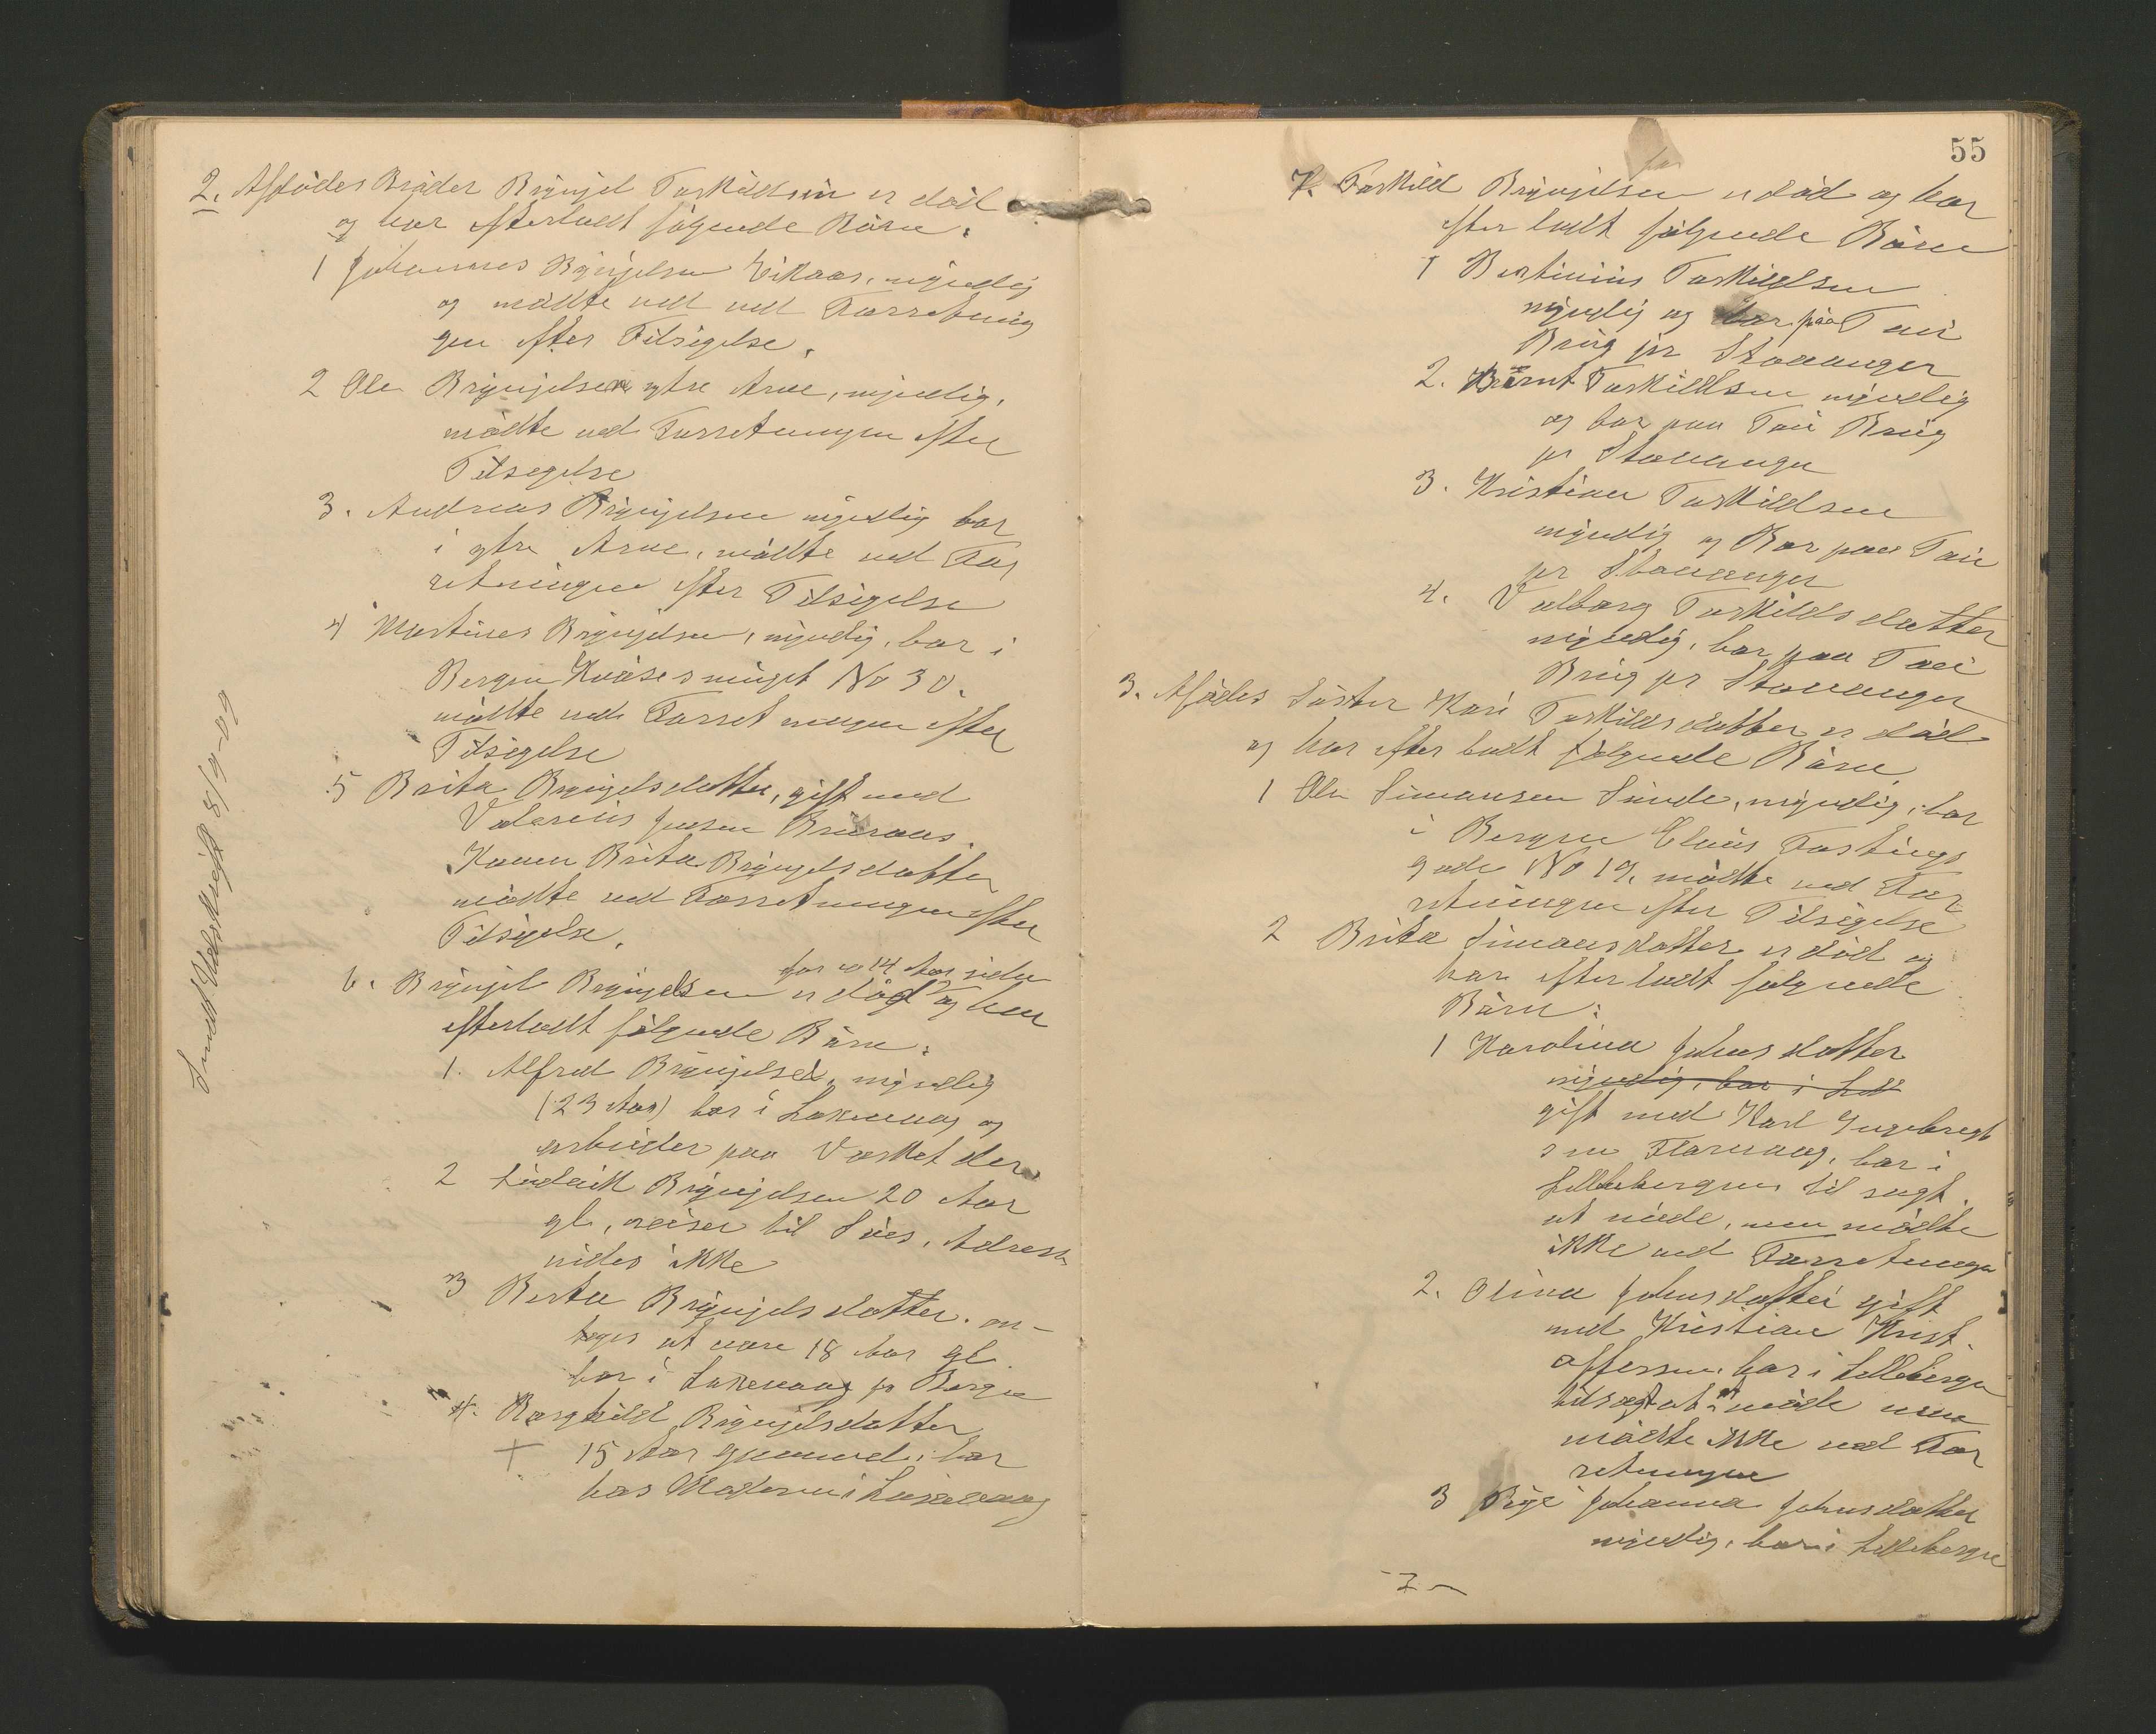 2. Afdødes Broder Brynjel Torkildsen er død
og har efterladt følgende Børn:
1 Johannes Brynjelsen Eikaas, myndig
og mødte ved Forretning
gen efter Tilsigelse.
2 Ole Brynjelsen ytre Arne, myndig,
mødte ved Forretningen efter
Tilsigelse
3. Andreas Brynjelsen myndig bor
i ytre Arne, mødte ved For
retningen efter Tilsigelse
4 Martines Brynjelsen, myndig, bor i
Bergen No 30.
mødte ved Forretningen efter
Tilsigelse
5 Brita Brynjelsdatter, gift med
Valerius Jensen
Konen Brita Brynjelsdatter
mødte ved Forretningen efter
Tilsigelse.
for 14 Aar siden
6. Brynjel Brynjelsen er død og har
efterladt følgende Børn:
1. Alfred Brynjelsen, myndig
(23 Aar) bor i Laksevaag og
arbeider paa Værket der
2 Ludvik Brynjelsen 20 Aar
gl., reiser til Søes, Adresse
vides ikke
3 Berta Brynjelsdatter. an-
tages at være 18 Aar gl.
bor i Laksevaag pr Bergen
4. Borghild Brynjelsdatter
+ 15 Aar gammel, bor
hos Moderen i Laksevaag
Sendt Udskrift 8/9-09
55
7. Torkild Brynjelsen er død og har
efterladt følgende Børn
1 Bertinius Torkildsen
myndig og bor paa Tau
Brug pr Stavanger
2. Bernt Torkildsen myndig
og bor paa Tau Brug
pr Stavanger
3. Kristian Torkildsen
myndig og Bor paa Tau
pr Stavanger
4. Valborg Torkildsdatter
myndig, bor paa Tau
Brug pr Stavanger
3. Afdødes Søster Kari Torkildsdatter er død
og har efterladt følgende Børn.
1 Ole Simonsen Sunde, myndig, bor
i Bergen Claus Fastings
gade No 19, mødte ved For
retningen efter Tilsigelse
2 Brita Simonsdatter er død og
har efterladt følgende
Børn:
1 Karolina Johnsdatter
myndig, bor i
gift med Karl Ingebregt
sen Florvaag, bor i
Lillebergen til sagt
at møde, men mødte
ikke ved Forretningen
2. Olina Johnsdatter gift
med Kristian Krist
offersen, bor i Lillebergen
tilsagt at møde men
mødte ikke ved For
retningen
3 Pige Johanna Johnsdatter
myndig, bor i Lillebergen